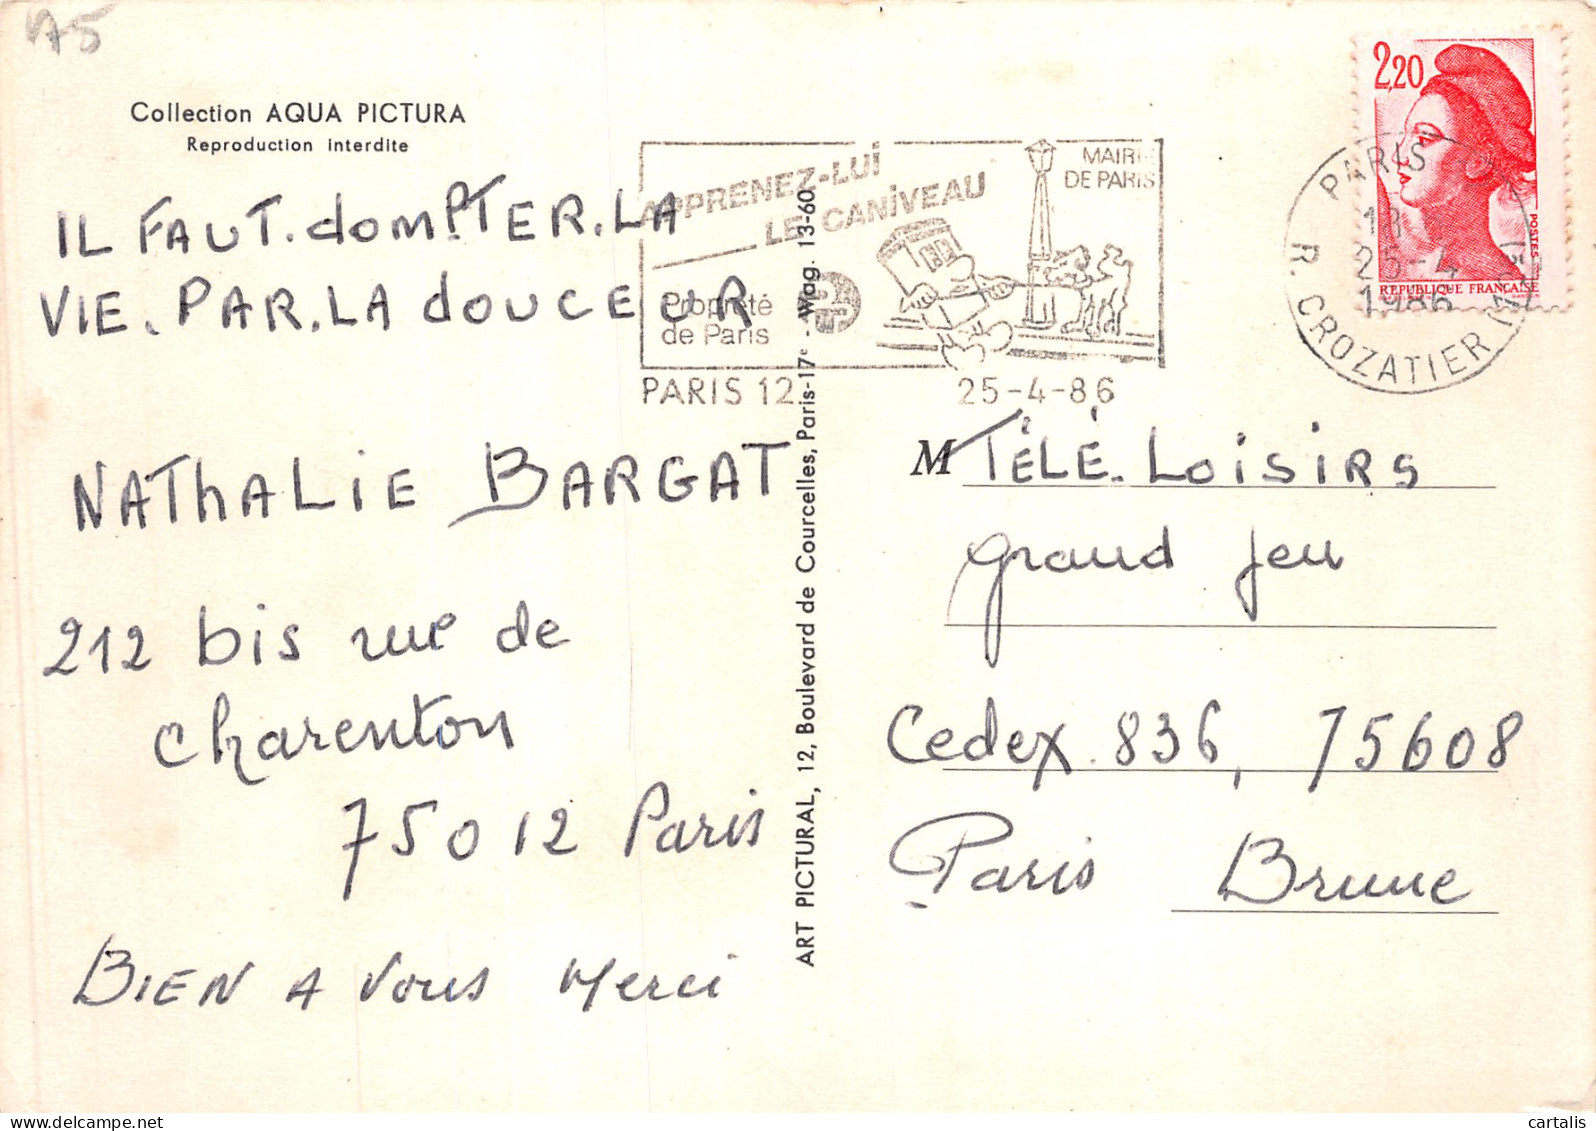 A5
Collection AQUA PICTURA
Reproduction interdite
IL FAUT. dompTER. LA
VIE. PAR. LA douceur
NATHALIE BARGAT
212 bis rue de
charenton
75012 Paris
BIEN A Vous Merci
ART PICTURAL, 12, Boulevard de Courcelles, Paris-17e - Wag. 13-60
APPRENEZ-LUI
LE CANIVEAU
MAIRIE
DE PARIS
Propreté
de Paris
PARIS 12
25-4-86
2,20
POSTES
RÉPUBLIQUE FRANÇAISE
PARIS
25-4
1986
R. CROZATIER
M TÉLÉ. LOISIRS
grand jeu
Cedex. 836, 75608
Paris Brune
cartalis
www.delcampe.net